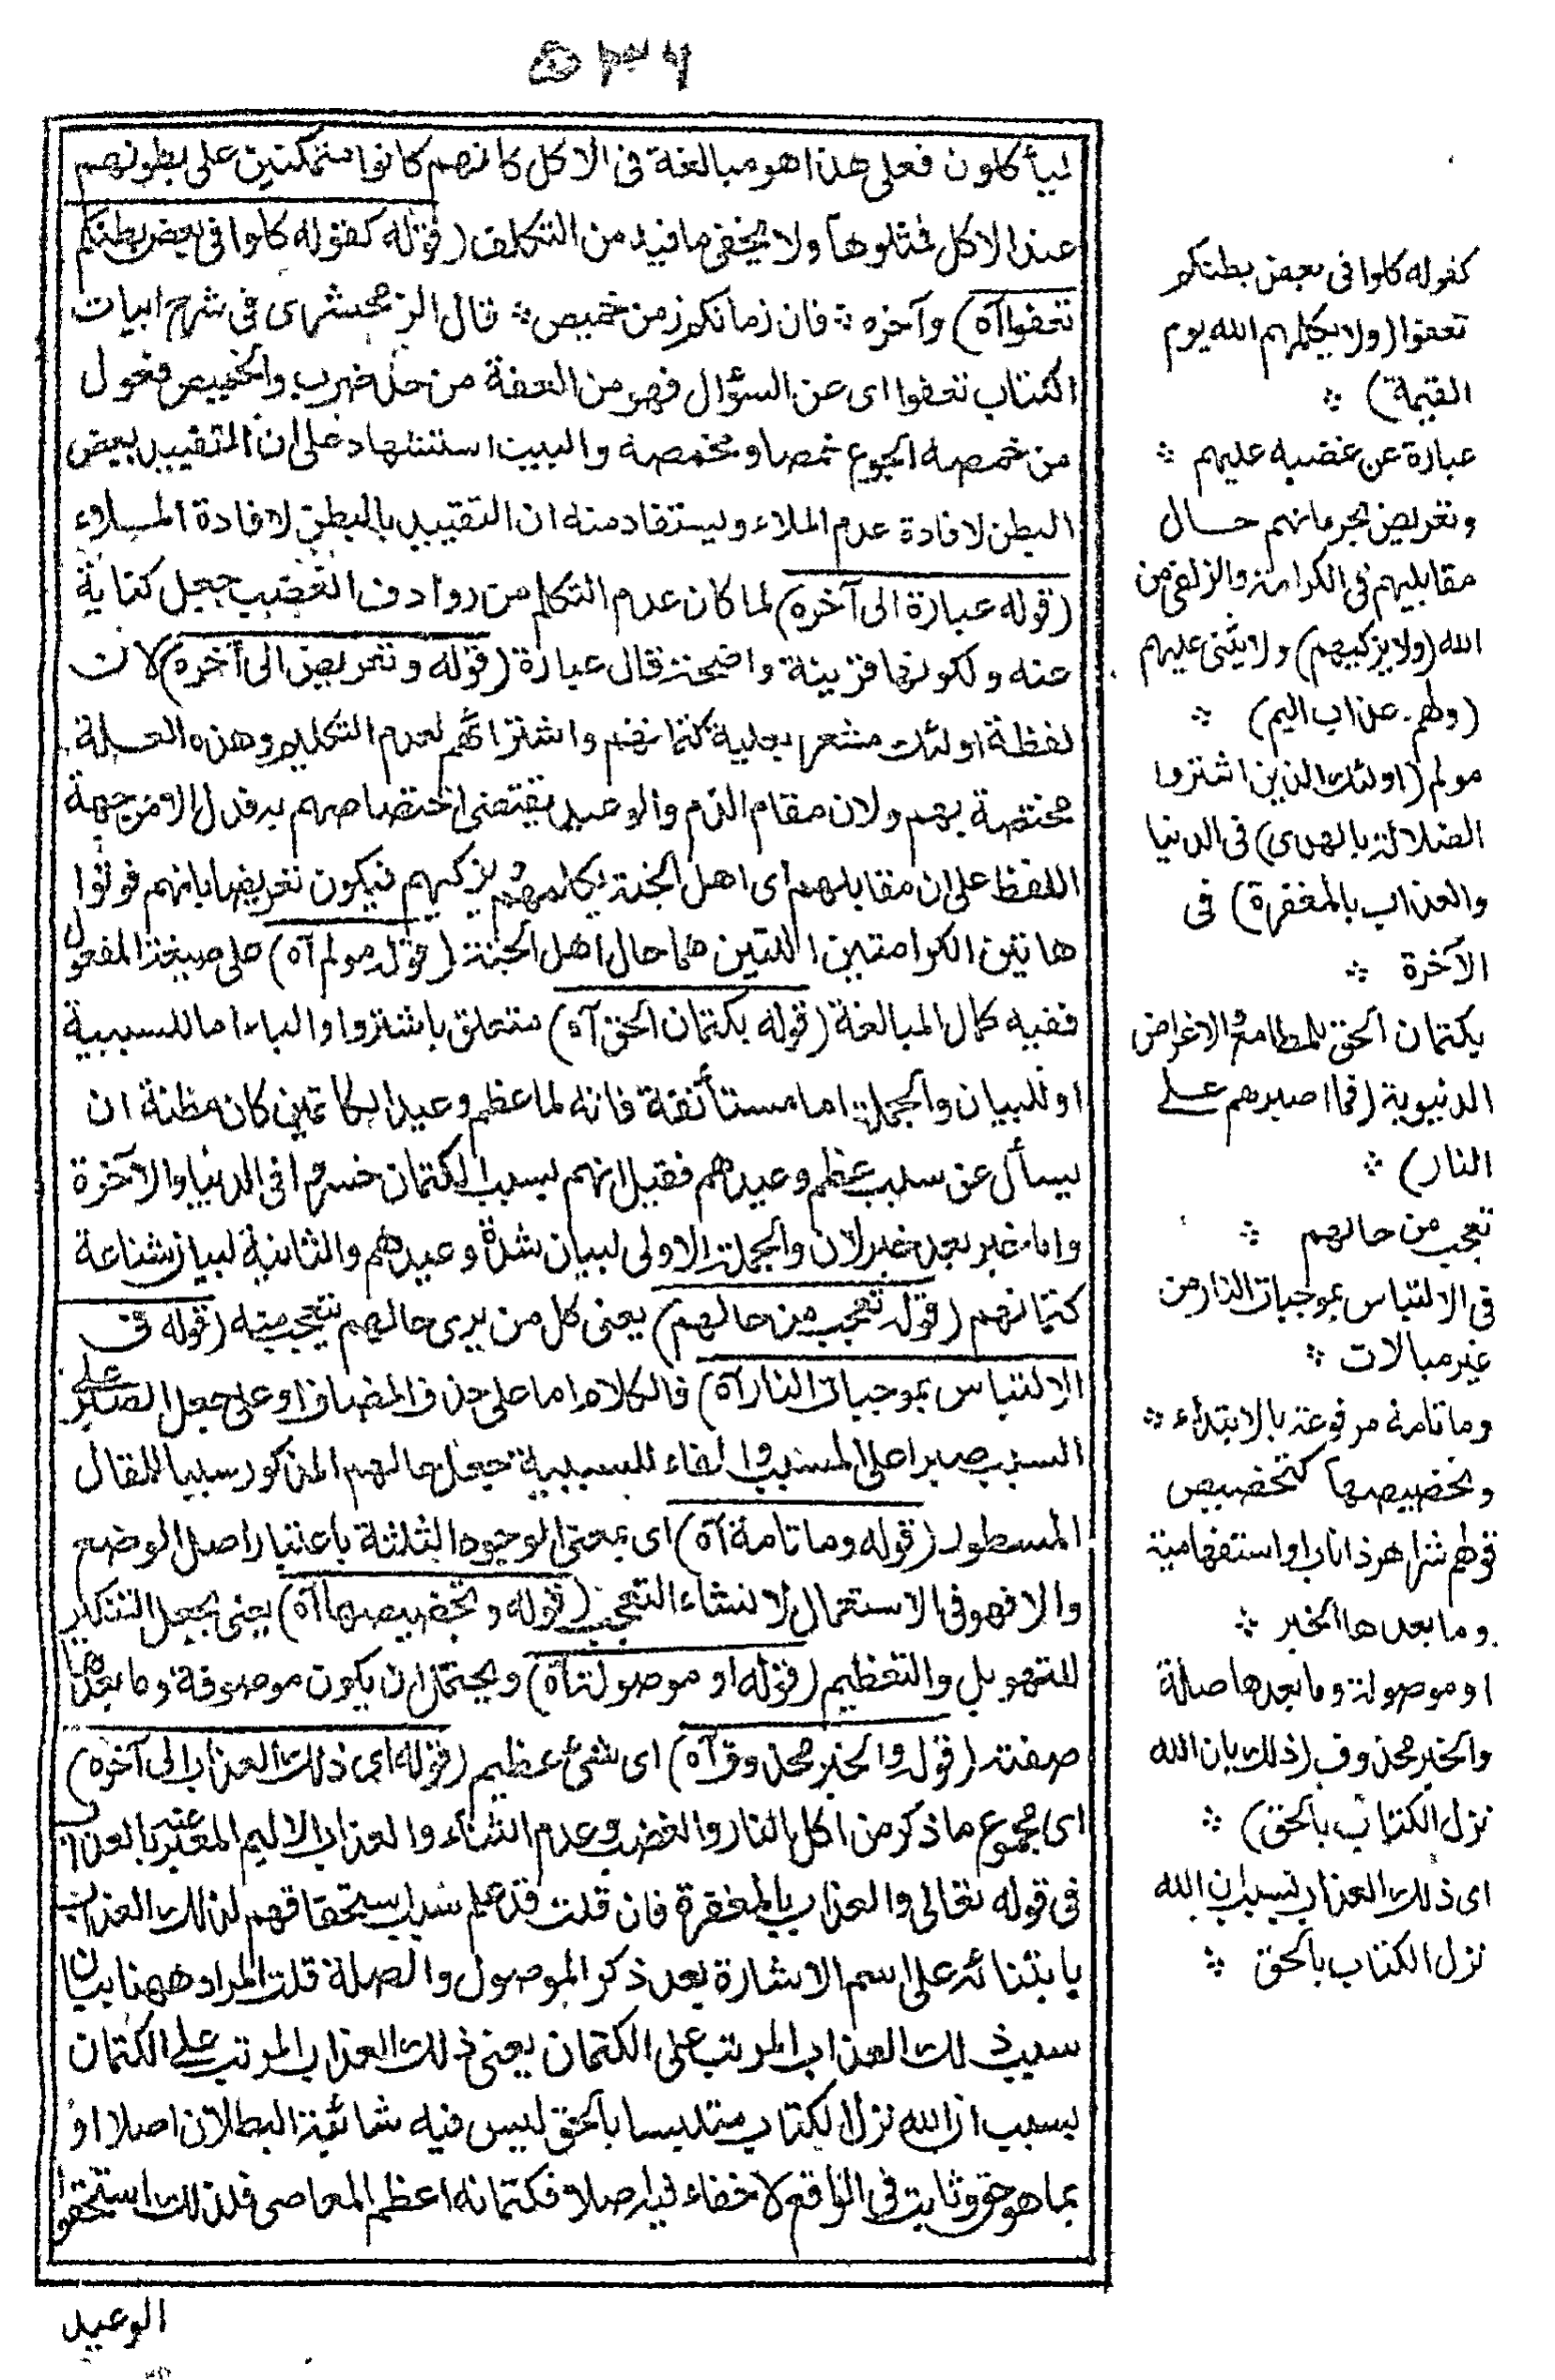 ٤٣٦
ليأكلون فعلى هذا هو مبالغة فى الاكل كانهم كانوا متمكنين على بطونهم
عند الاكل فمثلوها ولا يخفى ما فيه من التكلف (قوله كقوله كلوا فى بعض بطنكم
تعفوا آه) وآخره ❊ فان زمانكم زمن خميص ❊ قال الزمخشرى فى شرح ابيات
الكتاب تعفوا اى عن السؤال فهو من العفة من حد ضرب والخميص فعول
من خمصه الجوع خمصا ومخمصة والبيت استشهاد على ان التقييد ببعض
البطن لافادة عدم الملاء ويستفاد منه ان التقييد بالبطن لافادة الملاء
(قوله عبارة الى آخره) لما كان عدم التكلم من روادف الغضب جعل كناية
عنه ولكونها قرينة واضحة قال عبارة (قوله وتعريض الى آخره) لان
لفظة اولئك مشعر بعلية كتمانهم واشترائهم لعدم التكليم وهذه العلة
مختصة بهم ولان مقام الذم والوعيد يقتضى اختصاصهم به فدل لا من جهة
اللفظ على ان مقابلهم اى اهل الجنة يكلمهم ويزكيهم فيكون تعريضا بانهم فوتوا
هاتين الكرامتين اللتين هما حال اهل الجنة (قوله مولم آه) على صيغة المفعول
ففيه كمال المبالغة (قوله بكتمان الحق آه) متعلق باشتروا والباء اما للسببية
او للبيان والجملة اما مستأنفة فانه لما عظم وعيد الكاتمين كان مظنة ان
يسأل عن سبب عظم وعيدهم فقيل انهم بسبب الكتمان خسروا فى الدنيا والآخرة
واما خبر بعد خبر لان والجملة الاولى لبيان شدة وعيدهم والثانية لبيان شناعة
كتمانهم (قوله تعجب من حالهم) يعنى كل من يرى حالهم يتعجب منه (قوله فى
الالتباس بموجبات النار آه) فالكلام اما على حذف المضاف او على جعل الصبر على
السبب صبرا على المسبب والفاء للسببية جعل حالهم المذكور سببا للمقال
المسطور (قوله وما تامة آه) اى بمعنى الوجوه الثلثة باعتبار اصل الوضع
والا فهو فى الاستعمال لانشاء التعجب (قوله وتخصيصها آه) يعنى بجعل التنكير
للتهويل والتعظيم (قوله او موصولة آه) ويحتمل ان يكون موصوفة وما بعدها
صفته (قوله والخبر محذوف آه) اى شئ عظيم (قوله اى ذلك العذاب الى آخره)
اى مجموع ما ذكر من اكل النار والغضب وعدم الثناء والعذاب الاليم المعبر عنه بالعذاب
فى قوله تعالى والعذاب بالمغفرة فان قلت قد علم سبب استحقاقهم لذلك العذاب
بابتنائه على اسم الاشارة بعد ذكر الموصول والصلة قلت المراد ههنا بيان
سبب ذلك العذاب المرتب على الكتمان يعنى ذلك العذاب المرتب على الكتمان
بسبب ان الله نزل الكتاب متلبسا بالحق ليس فيه شائبة البطلان اصلا او
بما هو حق وثابت فى الواقع لا خفاء فيه اصلا فكتمانه اعظم المعاصى فلذلك استحقوا
الوعيد
كقوله كلوا فى بعض بطنكم
تعفوا (ولا يكلمهم الله يوم
القيمة) ❊
عبارة عن غضبه عليهم ❊
وتعريض بحرمانهم حال
مقابليهم فى الكرامة والزلفى من
الله (ولا يزكيهم) ولا يثنى عليهم
(ولهم عذاب اليم) ❊
مولم (اولئك الذين اشتروا
الضلالة بالهدى) فى الدنيا
والعذاب بالمغفرة) فى
الآخرة ❊
بكتمان الحق للمطامع والاغراض
الدنيوية (فما اصبرهم على
النار) ❊
تعجب من حالهم ❊
فى الالتباس بموجبات النار من
غير مبالات ❊
وما تامة مرفوعة بالابتداء ❊
وتخصيصها كتخصيص
قولهم شر اهر ذا ناب او استفهامية
وما بعدها الخبر ❊
او موصولة وما بعدها صلة
والخبر محذوف (ذلك بان الله
نزل الكتاب بالحق) ❊
اى ذلك العذاب بسبب ان الله
نزل الكتاب بالحق ❊